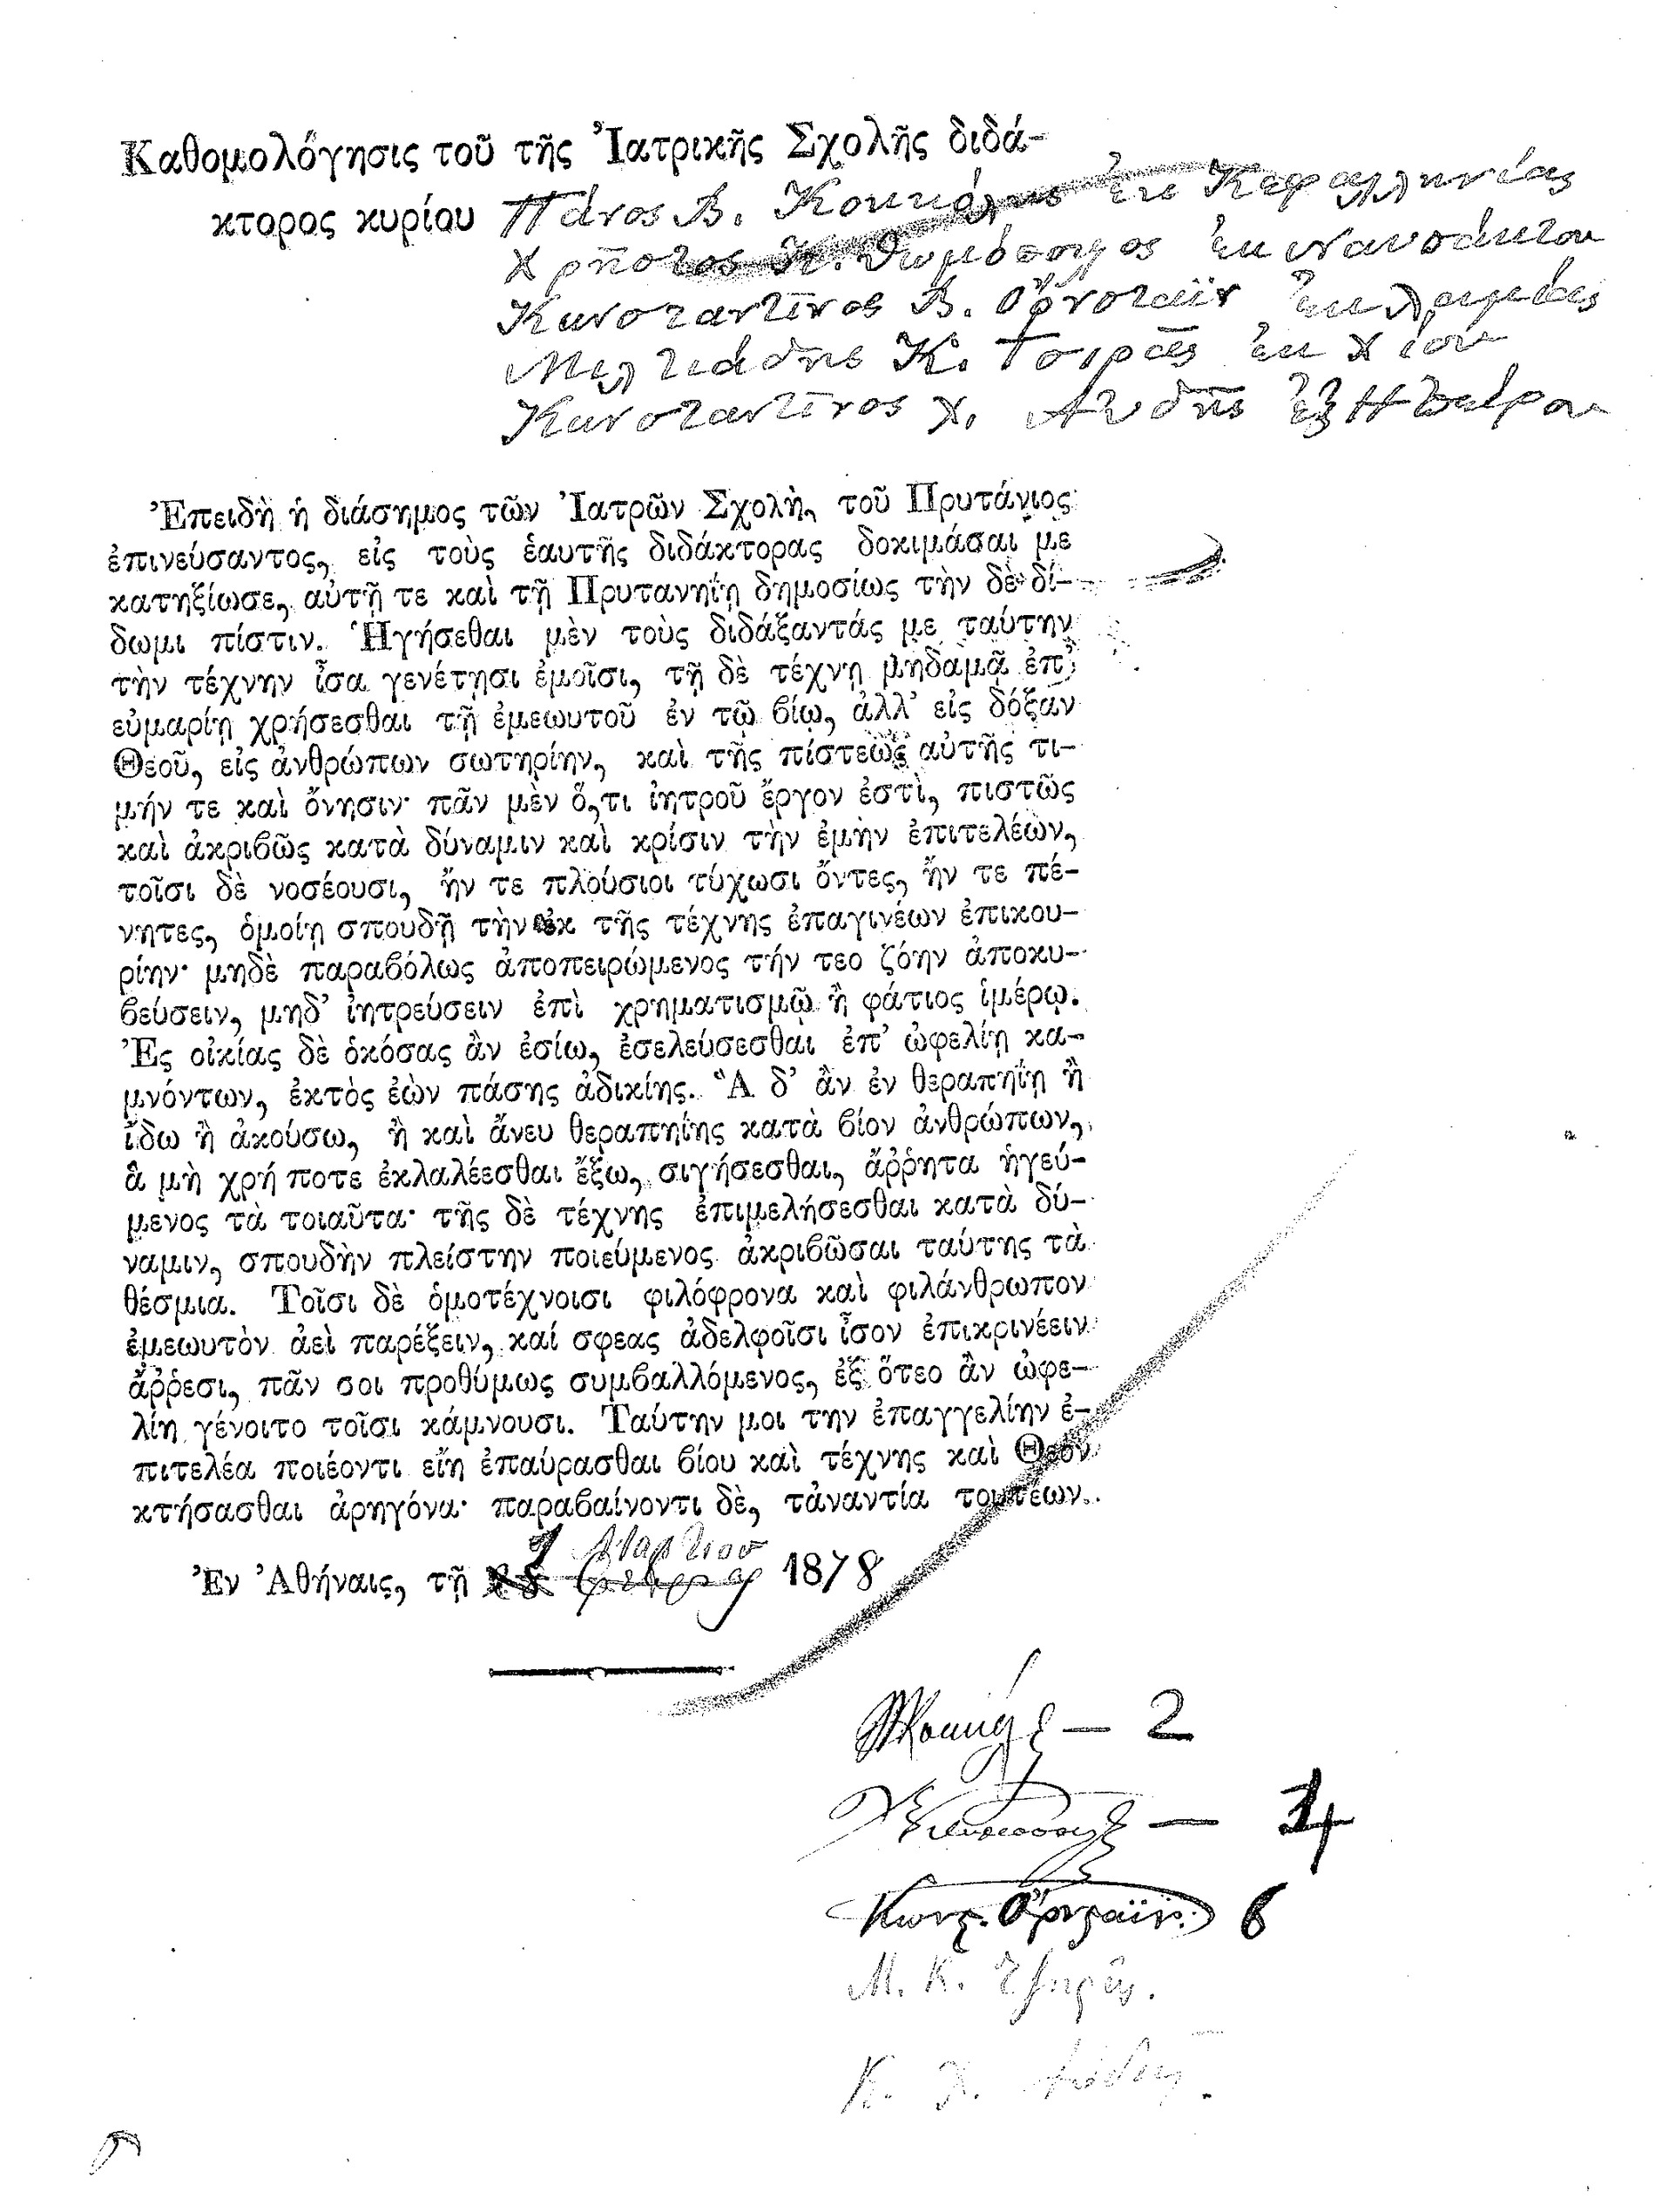 Καθομολόγησις τοῦ τῆς Ἰατρικῆς Σχολῆς διδά-
κτορος κυρίου Πάνος Β. Κουκάλης ἐκ Κεφαλληνίας
Χρῆστος Κ. Θωμόπουλος ἐκ Ναυπάκτου
Κωνσταντῖνος Β. Ὄρνσταϊν ἐκ Λαμίας
Μιλτιάδης Κ. Τσιρᾶς ἐκ Χίου
Κωνσταντῖνος Χ. Αὐδῆς ἐξ Ἠπείρου
Ἐπειδὴ ἡ διάσημος τῶν Ἰατρῶν Σχολὴ, τοῦ Πρυτάνιος
ἐπινεύσαντος, εἰς τοὺς ἑαυτῆς διδάκτορας δοκιμάσαι με
κατηξίωσε, αὐτῇ τε καὶ τῇ Πρυτανηΐῃ δημοσίως τὴν δὲ δί-
δωμι πίστιν. Ἡγήσεθαι μὲν τοὺς διδάξαντάς με ταύτην
τὴν τέχνην ἶσα γενέτῃσι ἐμοῖσι, τῇ δὲ τέχνῃ μηδαμᾷ ἐπ'
εὐμαρίῃ χρήσεσθαι τῇ ἐμεωυτοῦ ἐν τῷ βίῳ, ἀλλ' εἰς δόξαν
Θεοῦ, εἰς ἀνθρώπων σωτηρίην, καὶ τῆς πίστεως αὐτῆς τι-
μήν τε καὶ ὄνησιν· πᾶν μὲν ὅ,τι ἰητροῦ ἔργον ἐστὶ, πιστῶς
καὶ ἀκριβῶς κατὰ δύναμιν καὶ κρίσιν τὴν ἐμὴν ἐπιτελέων,
τοῖσι δὲ νοσέουσι, ἤν τε πλούσιοι τύχωσι ὄντες, ἤν τε πέ-
νητες, ὁμοίῃ σπουδῇ τὴν ἐκ τῆς τέχνης ἐπαγινέων ἐπικου-
ρίην· μηδὲ παραβόλως ἀποπειρώμενος τήν τεο ζόην ἀποκυ-
βεύσειν, μηδ' ἰητρεύσειν ἐπὶ χρηματισμῷ ἢ φάτιος ἱμέρῳ.
Ἐς οἰκίας δὲ ὁκόσας ἂν ἐσίω, ἐσελεύσεσθαι ἐπ' ὠφελίῃ κα-
μνόντων, ἐκτὸς ἐὼν πάσης ἀδικίης. Ἃ δ' ἂν ἐν θεραπηΐῃ ἢ
ἴδω ἢ ἀκούσω, ἢ καὶ ἄνευ θεραπηίης κατὰ βίον ἀνθρώπων,
ἃ μὴ χρή ποτε ἐκλαλέεσθαι ἔξω, σιγήσεσθαι, ἄῤῥητα ἡγεύ-
μενος τὰ τοιαῦτα· τῆς δὲ τέχνης ἐπιμελήσεσθαι κατὰ δύ-
ναμιν, σπουδὴν πλείστην ποιεύμενος ἀκριβῶσαι ταύτης τὰ
θέσμια. Τοῖσι δὲ ὁμοτέχνοισι φιλόφρονα καὶ φιλάνθρωπον
ἐμεωυτὸν ἀεὶ παρέξειν, καί σφεας ἀδελφοῖσι ἶσον ἐπικρινέειν
ἄῤῥεσι, πᾶν σοι προθύμως συμβαλλόμενος, ἐξ ὅτεο ἂν ὠφε-
λίη γένοιτο τοῖσι κάμνουσι. Ταύτην μοι την ἐπαγγελίην ἐ-
πιτελέα ποιέοντι εἴη ἐπαύρασθαι βίου καὶ τέχνης καὶ Θεὸν
κτήσασθαι ἀρηγόνα· παραβαίνοντι δὲ, τἀναντία τουτέων.
1 Μαρτίου
Ἐν Ἀθήναις, τῇ Φεβρουαρ 1878
— 2
— 14
Κωνς. Ὄρνςαϊν. 6
Μ. Κ. Τσηρᾶς.
Κ. Χ. Αὐδῆς.